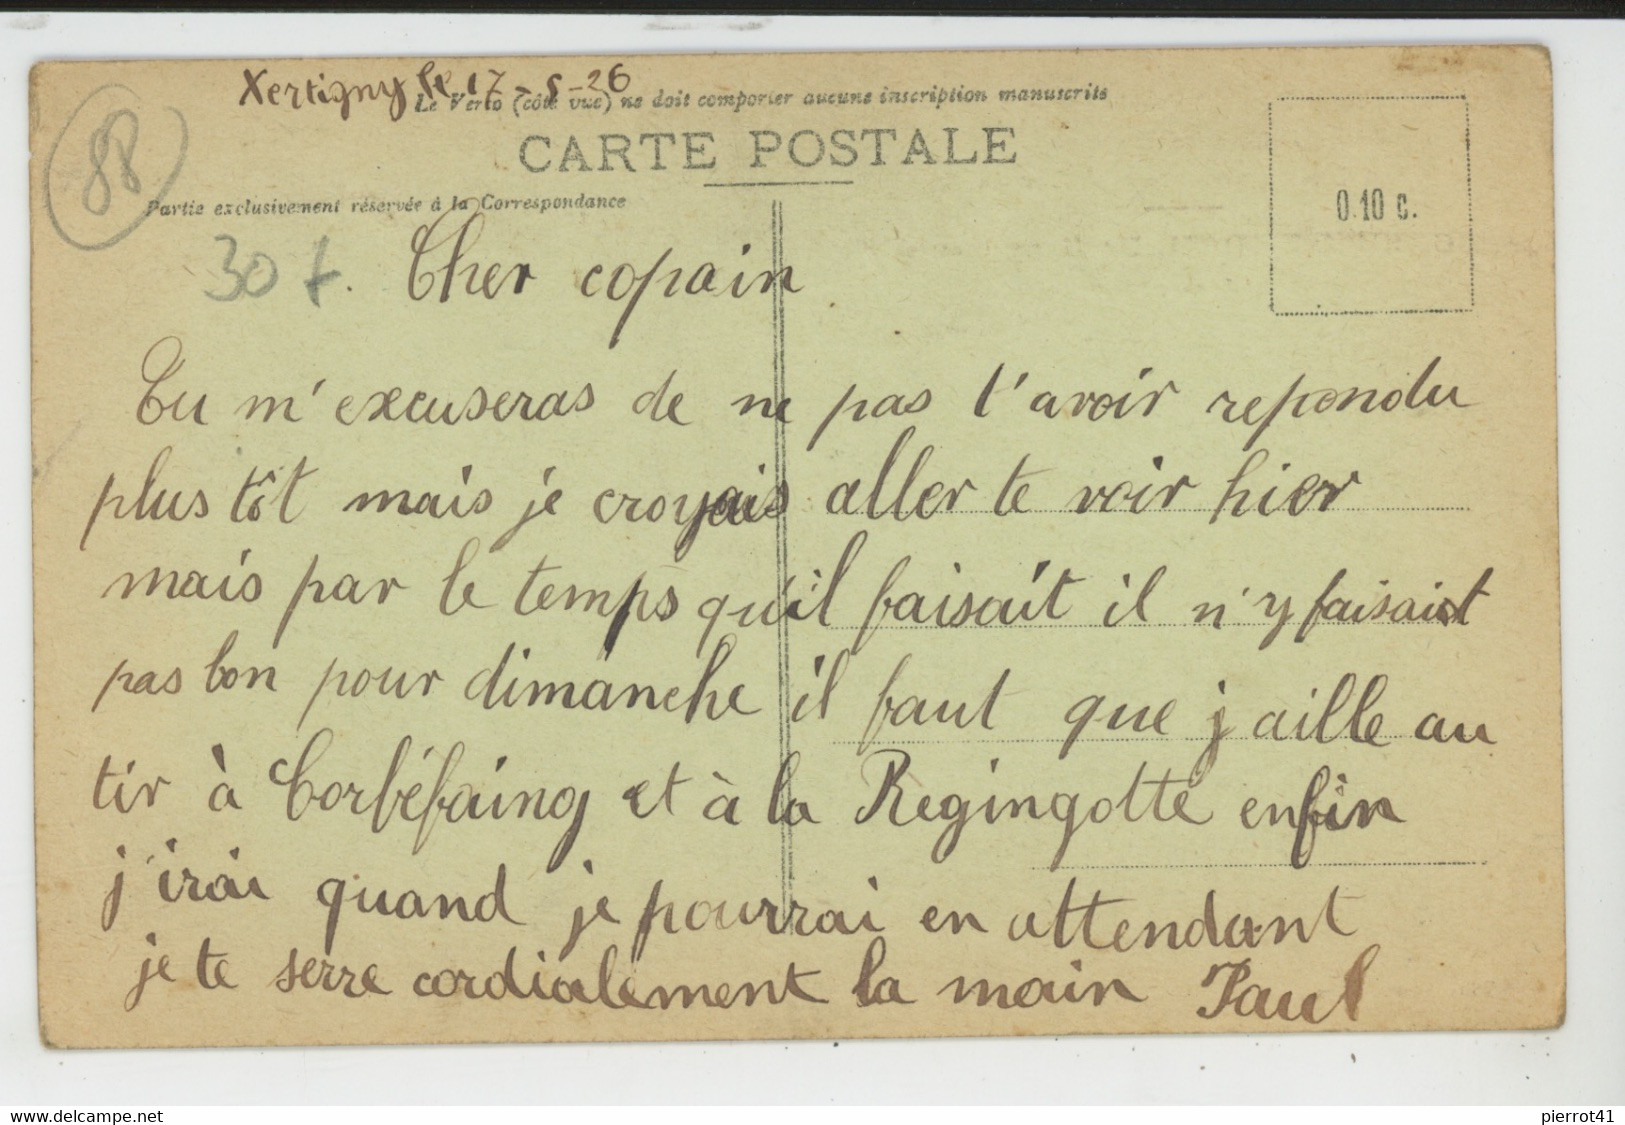 Xertigny le 17-5-26
Le Verso (côté vue) ne doit comporter aucune inscription manuscrite
CARTE POSTALE
88
Partie exclusivement réservée à la Correspondance
0.10 c.
30 f. Cher copain
Tu m'excuseras de ne pas t'avoir repondu
plus tôt mais je croyais aller te voir hier
mais par le temps qu'il faisait il n'y faisait
pas bon pour dimanche il faut que j aille au
tir à Corbéfaing et à la Regingotte enfin
j'irai quand je pourrai en attendant
je te serre cordialement la main Paul
www.delcampe.net
pierrot41